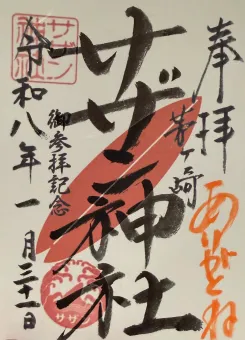 奉拝
茅ヶ崎
ありがとね
サザン神社
御参拝記念
令和八年一月三十一日
サザン
神社
サザ